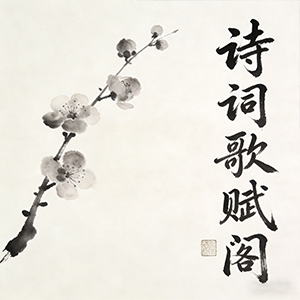 诗词歌赋阁